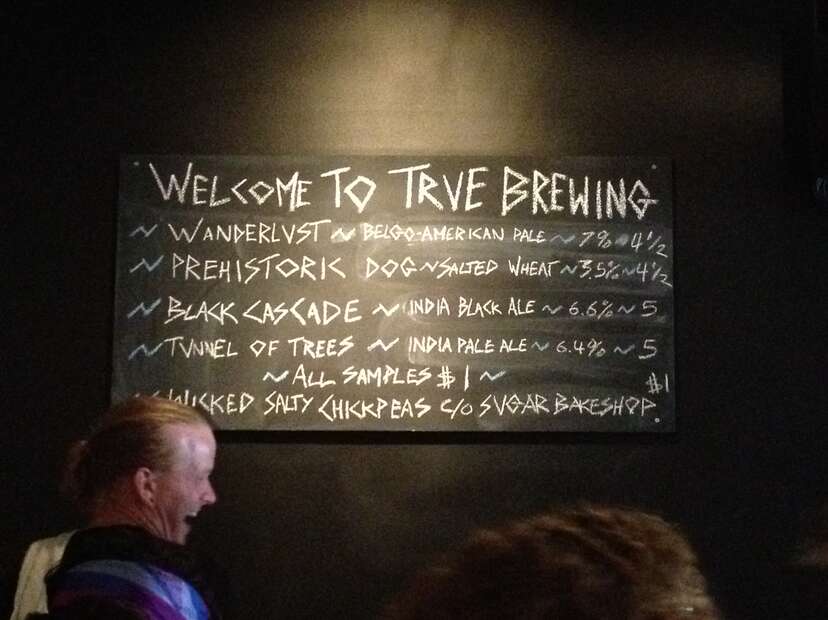 WELCOME TO TRVE BREWING
~ WANDERLVST ~ BELGO-AMERICAN PALE ~ 7% ~ 4 1/2
~ PREHISTORIC DOG ~ SALTED WHEAT ~ 3.5% ~ 4 1/2
~ BLACK CASCADE ~ INDIA BLACK ALE ~ 6.6% ~ 5
~ TVNNEL OF TREES ~ INDIA PALE ALE ~ 6.4% ~ 5
~ ALL SAMPLES $1 ~
WICKED SALTY CHICKPEAS C/O SVGAR BAKESHOP $1